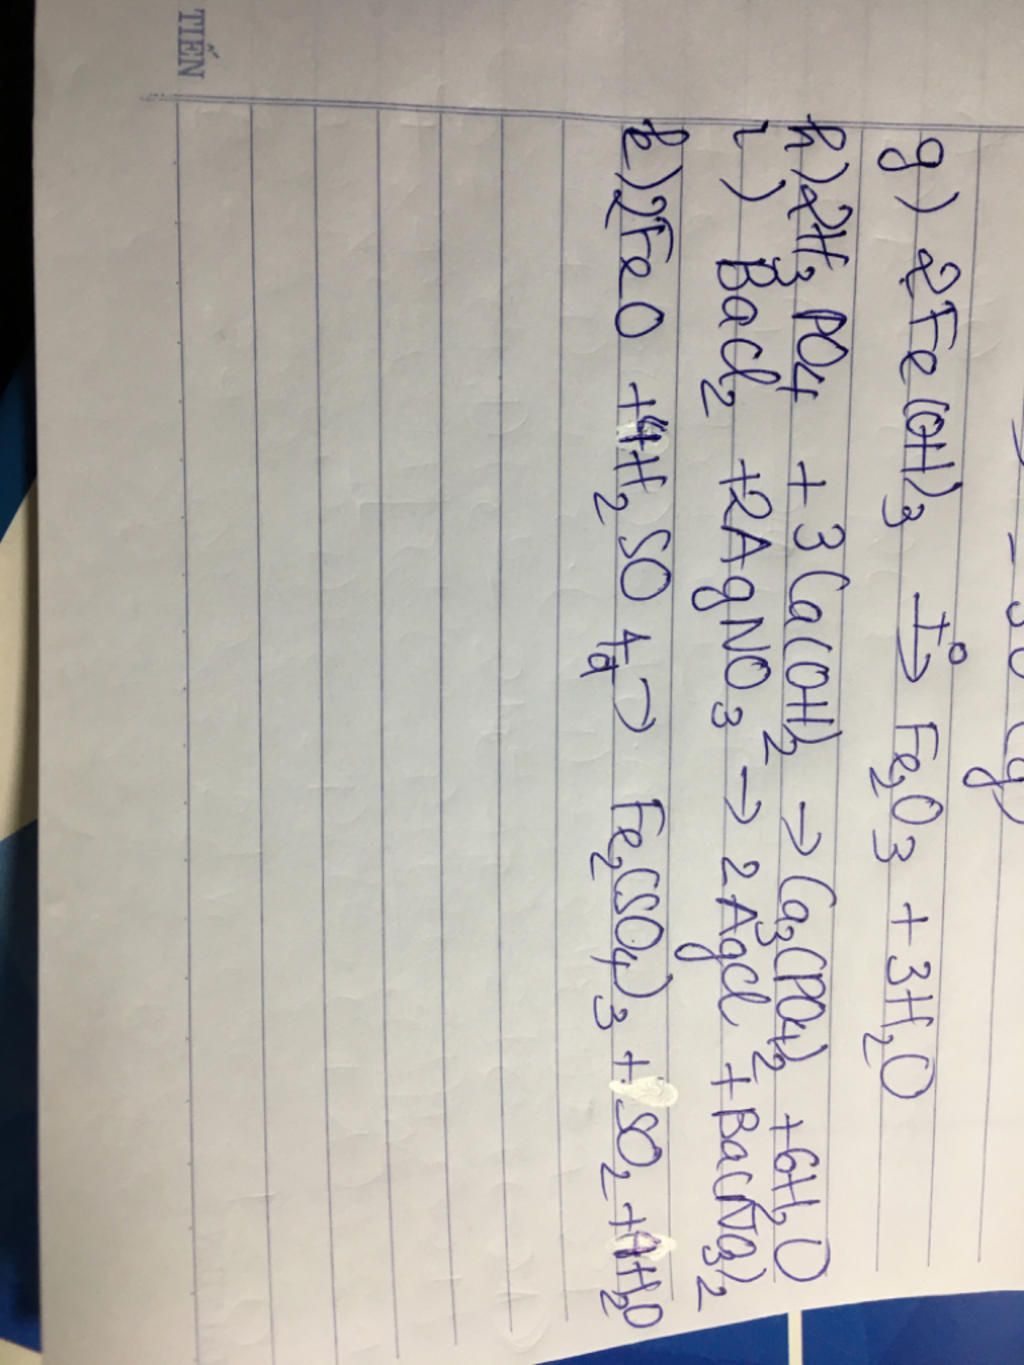 g) 2Fe(OH)3 t°→ Fe2O3 + 3H2O
h) 2H3PO4 + 3Ca(OH)2 → Ca3(PO4)2 + 6H2O
i) BaCl2 + 2AgNO3 → 2AgCl + Ba(NO3)2
k) 2FeO + 4H2SO4đ → Fe2(SO4)3 + SO2 + 4H2O
TIẾN